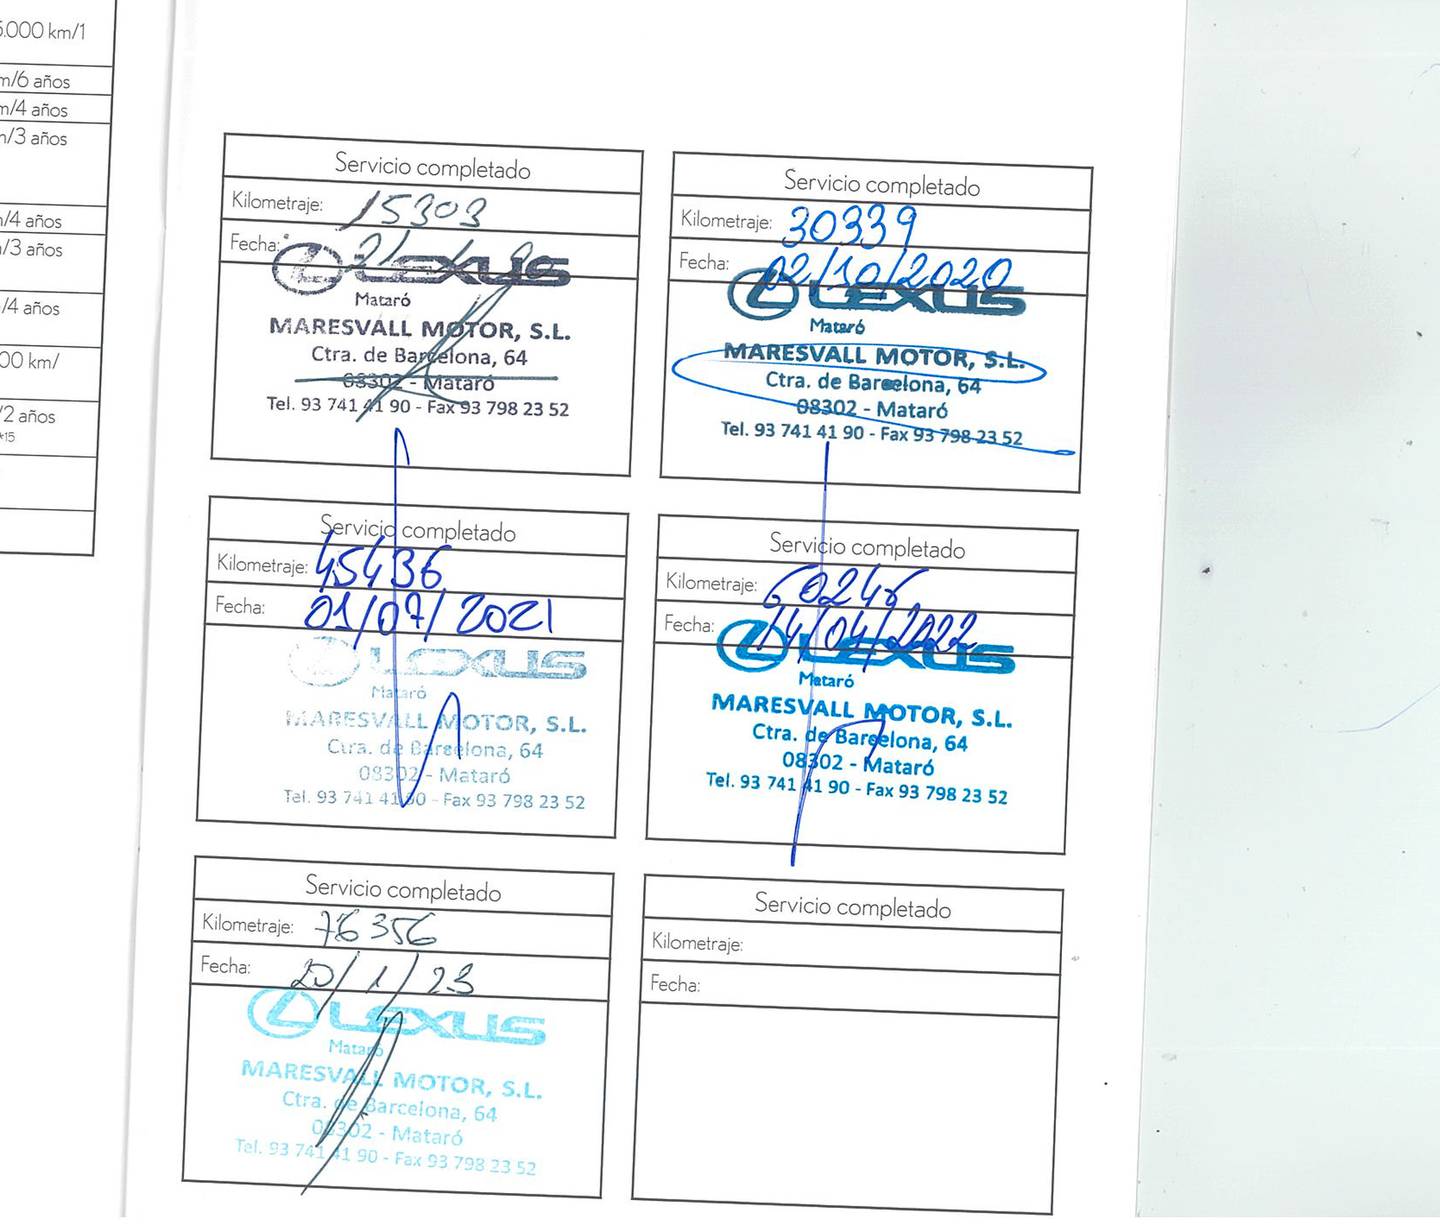 5.000 km/1
m/6 años
m/4 años
n/3 años
n/4 años
n/3 años
/4 años
00 km/
/2 años
*15
Servicio completado
Kilometraje: 15303
Fecha:
LEXUS
Mataró
MARESVALL MOTOR, S.L.
Ctra. de Barcelona, 64
08302 - Mataró
Tel. 93 741 41 90 - Fax 93 798 23 52
Servicio completado
Kilometraje: 30339
Fecha: 02/10/2020
LEXUS
Mataró
MARESVALL MOTOR, S.L.
Ctra. de Barcelona, 64
08302 - Mataró
Tel. 93 741 41 90 - Fax 93 798 23 52
Servicio completado
Kilometraje: 45436
Fecha: 01/07/2021
LEXUS
Mataró
MARESVALL MOTOR, S.L.
Ctra. de Barcelona, 64
08302 - Mataró
Tel. 93 741 41 90 - Fax 93 798 23 52
Servicio completado
Kilometraje: 60246
Fecha: 14/04/2022
LEXUS
Mataró
MARESVALL MOTOR, S.L.
Ctra. de Barcelona, 64
08302 - Mataró
Tel. 93 741 41 90 - Fax 93 798 23 52
Servicio completado
Kilometraje: 76356
Fecha: 20/1/23
LEXUS
Mataró
MARESVALL MOTOR, S.L.
Ctra. de Barcelona, 64
08302 - Mataró
Tel. 93 741 41 90 - Fax 93 798 23 52
Servicio completado
Kilometraje:
Fecha: